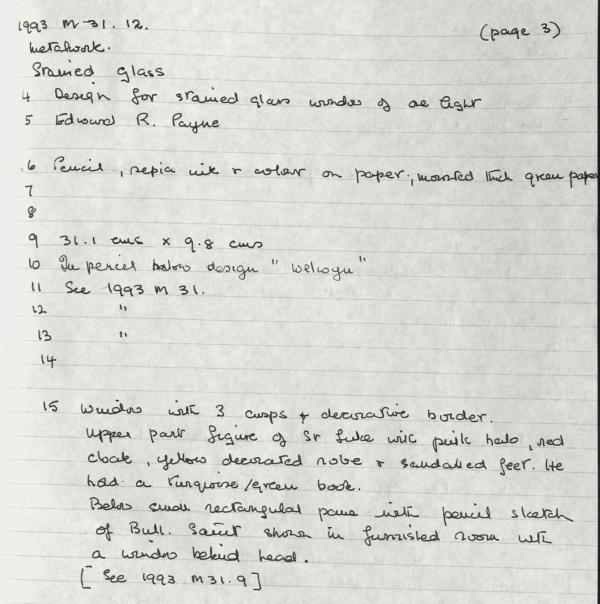 1993 M 31. 12. (page 3)
Metalwork.
Stained glass
4 Design for stained glass window of one light
5 Edward R. Payne
6 Pencil, sepia ink & colour on paper, mounted thick green paper
7
8
9 31.1 cms x 9.8 cms
10 In pencil below design "Welwyn"
11 See 1993 M 31.
12 "
13 "
14
15 Window with 3 cusps & decorative border.
Upper part figure of St Luke with pink halo, red
cloak, yellow decorated robe & sandalled feet. He
holds a turquoise/green book.
Below small rectangular pane with pencil sketch
of Bull. Saint shown in furnished room with
a window behind head.
[See 1993 M31.9]